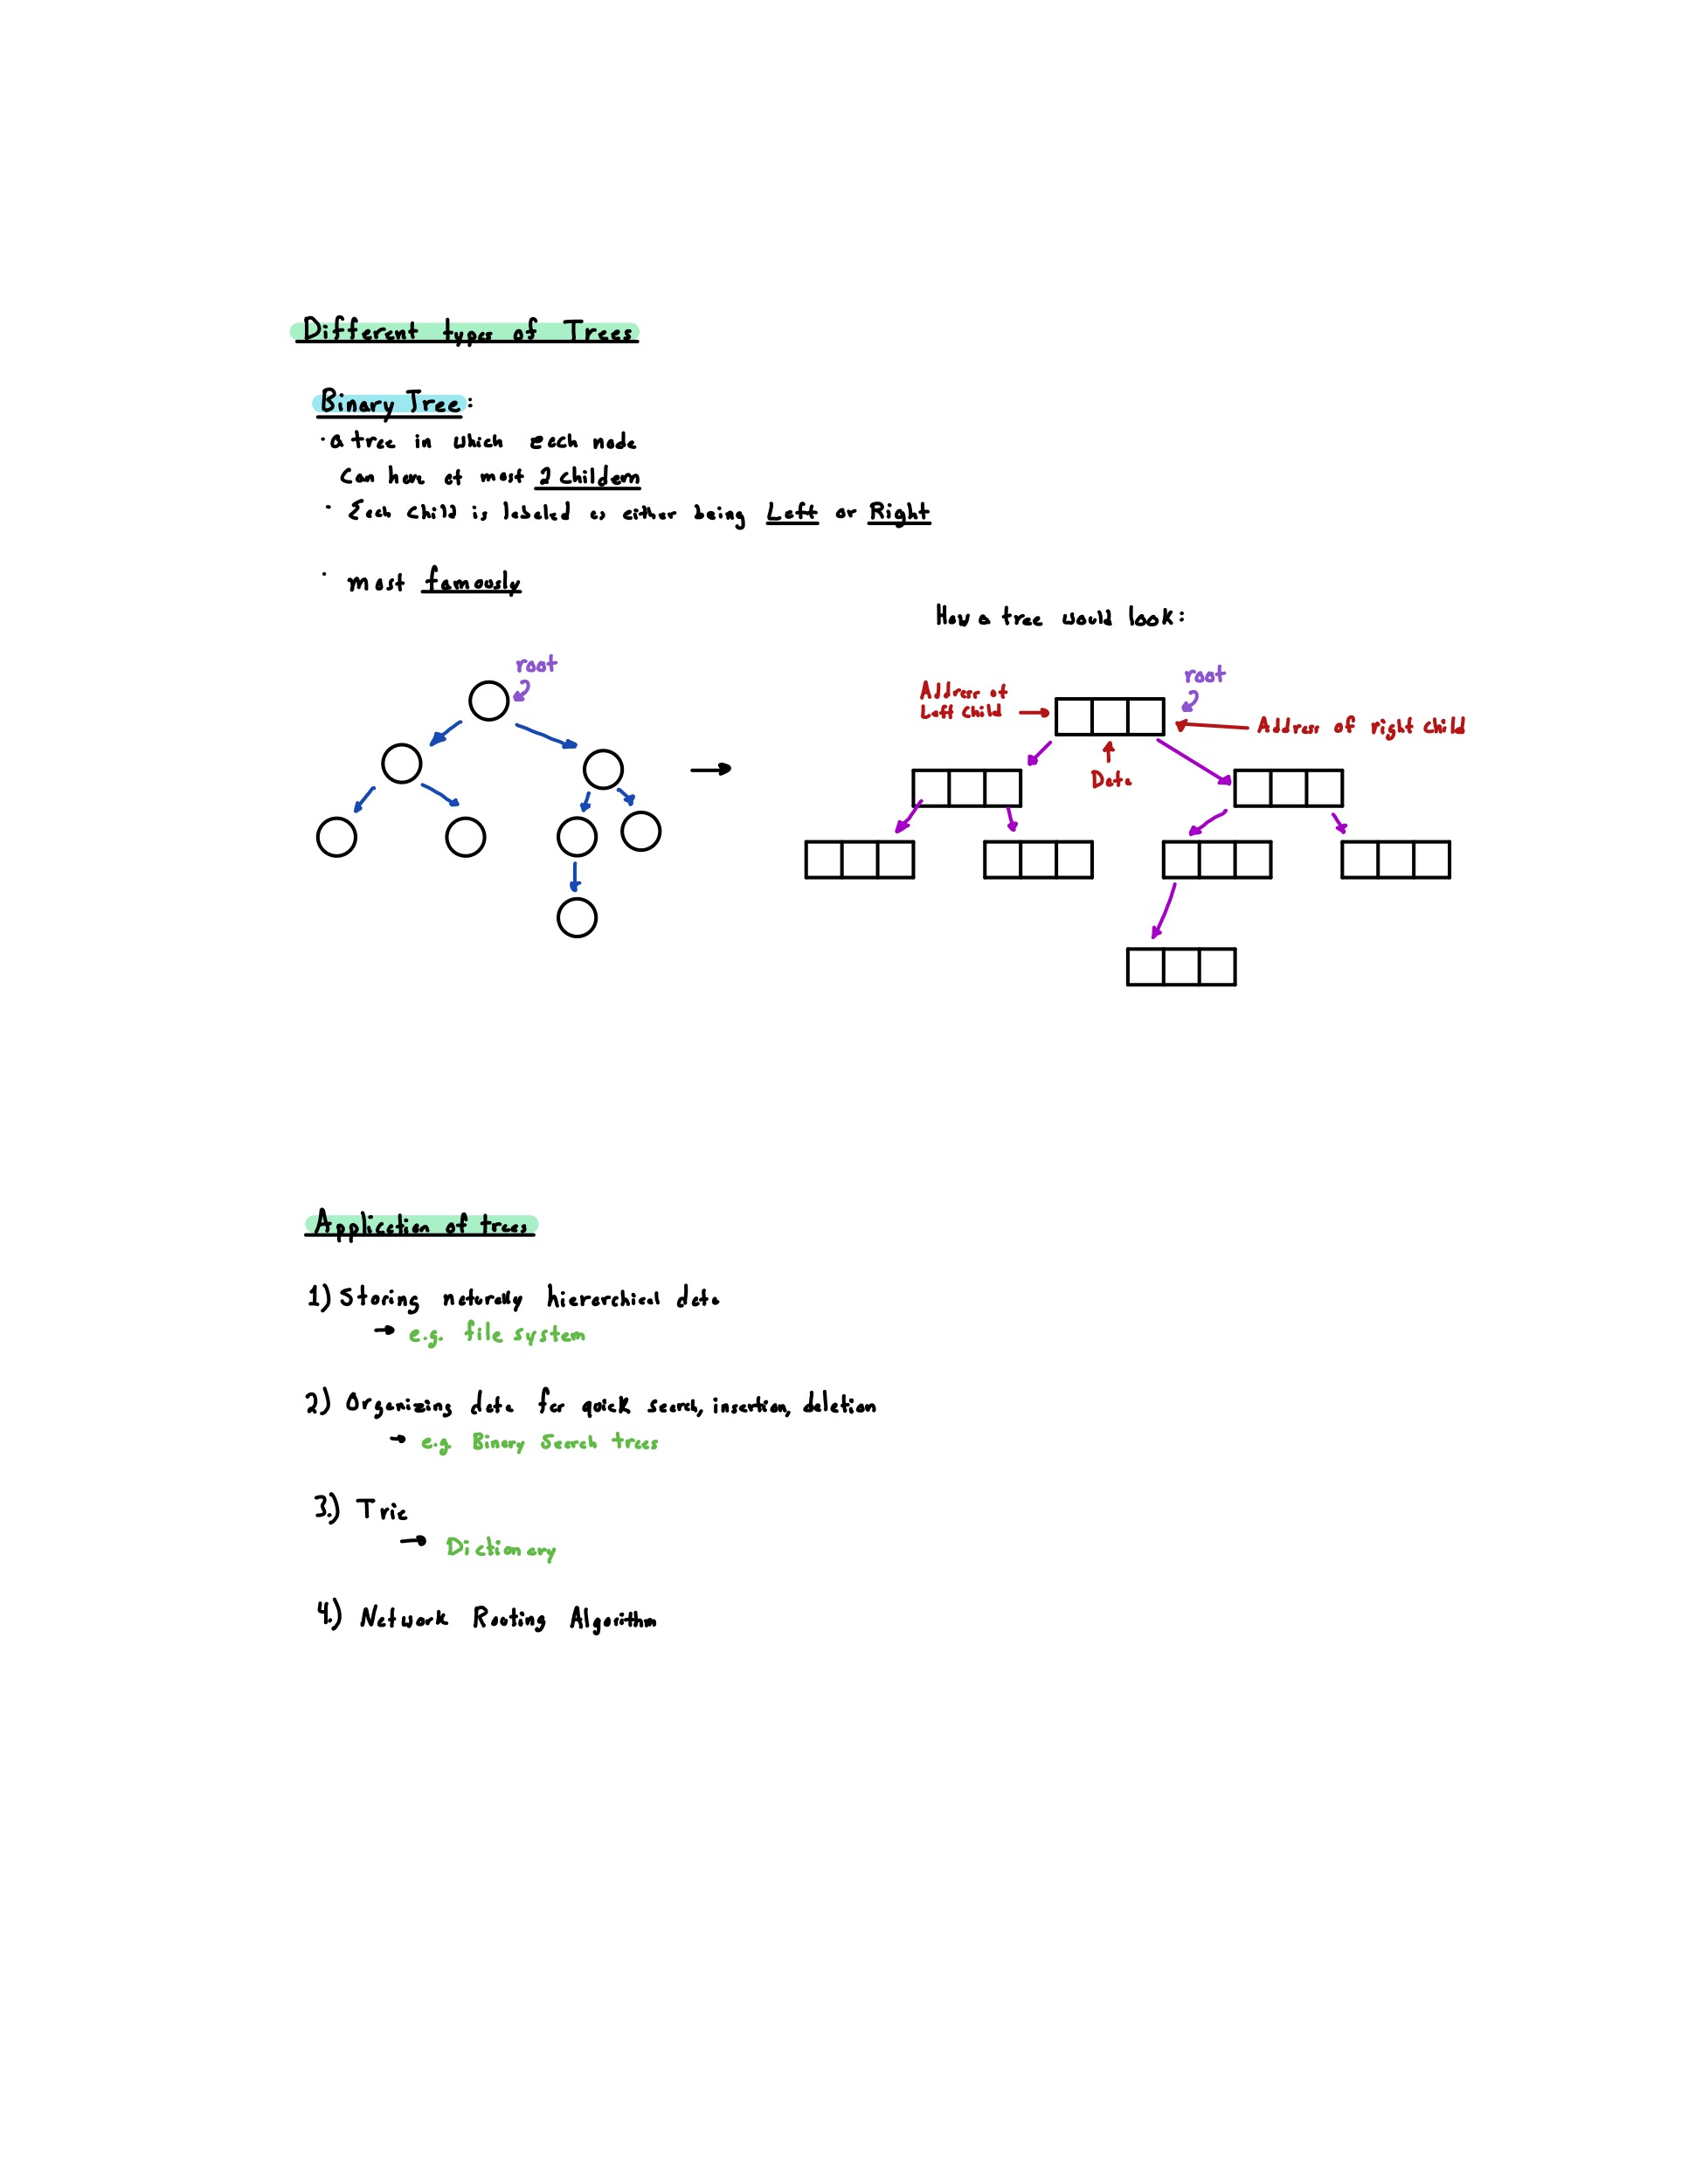 Different types of Trees
Binary Tree:
· a tree in which each node
can have at most 2 childern
· Each child is labeled as either being Left or Right
· most famously
How a tree would look:
root
root
Address of
Left Child
Address of right child
Data
Application of trees
1) Storing naturally hierarchical data
→ e.g. file system
2) Organizing data for quick search, insertion, deletion
→ e.g Binary Search trees
3.) Trie
→ Dictionary
4.) Network Rooting Algorithm